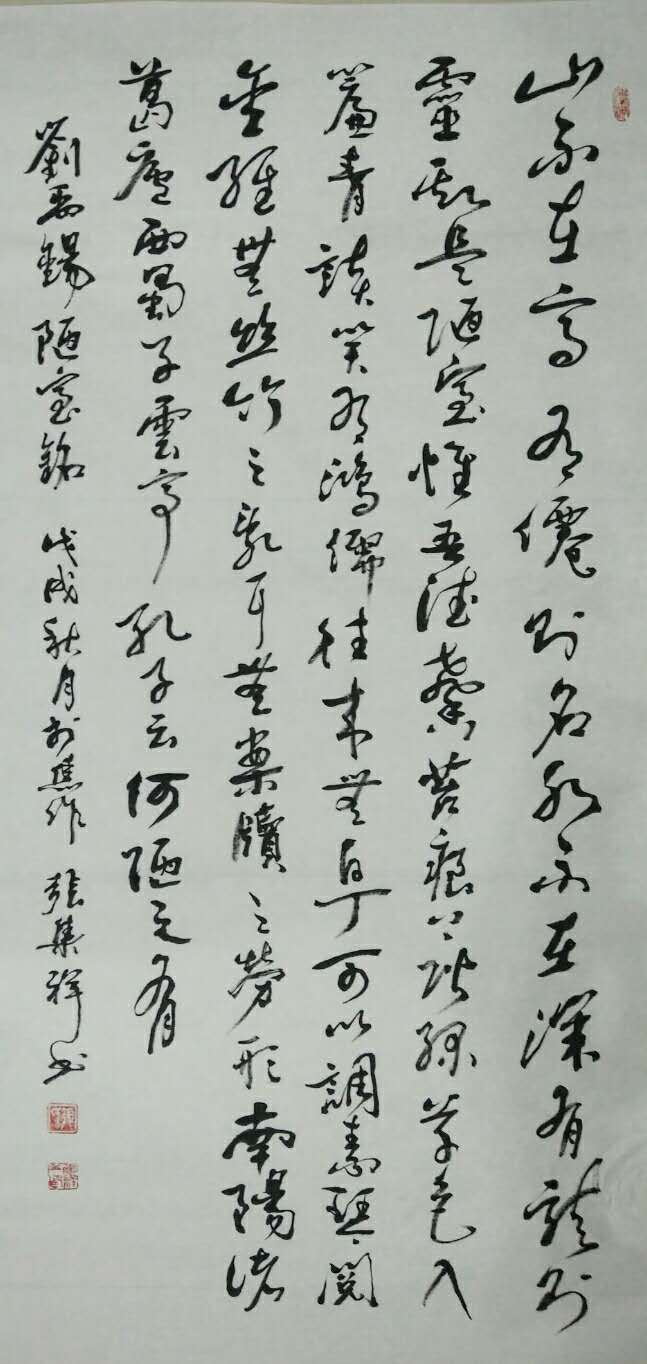 山不在高有僊則名水不在深有龍則
靈斯是陋室惟吾德馨苔痕上階綠草色入
簾青談笑有鴻儒往來無白丁可以調素琴閱
金經無絲竹之亂耳無案牘之勞形南陽諸
葛廬西蜀子雲亭孔子云何陋之有
劉禹錫陋室銘 戊戌秋月於焦作 張集祥书